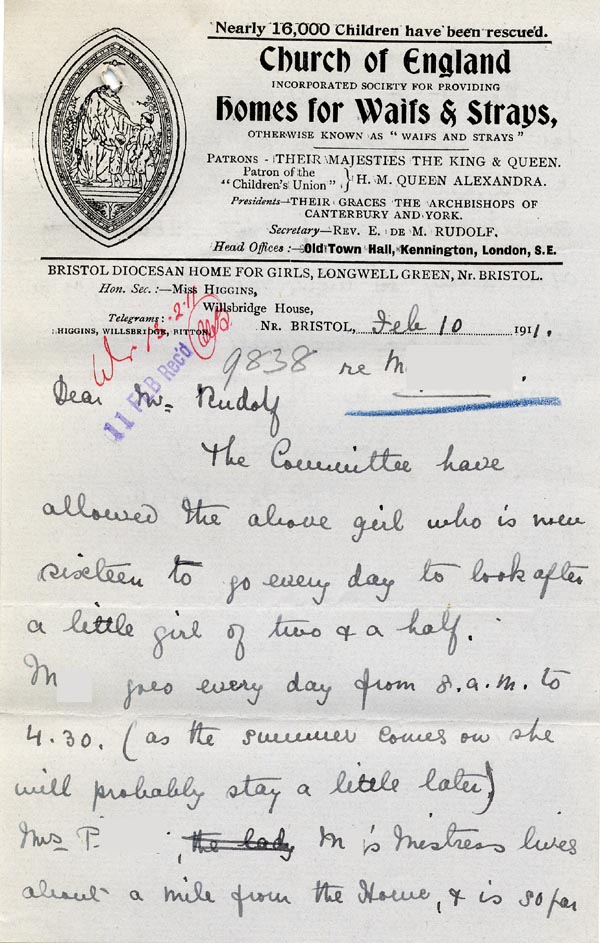 Nearly 16,000 Children have been rescued.
Church of England
INCORPORATED SOCIETY FOR PROVIDING
Homes for Waifs & Strays,
OTHERWISE KNOWN AS "WAIFS AND STRAYS"
PATRONS - THEIR MAJESTIES THE KING & QUEEN.
Patron of the "Children's Union" } H. M. QUEEN ALEXANDRA.
Presidents—THEIR GRACES THE ARCHBISHOPS OF
CANTERBURY AND YORK.
Secretary—REV. E. DE M. RUDOLF.
Head Offices :—Old Town Hall, Kennington, London, S.E.
BRISTOL DIOCESAN HOME FOR GIRLS, LONGWELL GREEN, Nr. BRISTOL.
Hon. Sec. :—Miss HIGGINS,
Willsbridge House,
Telegrams:
HIGGINS, WILLSBRIDGE, BITTON.
NR. BRISTOL, Feb 10 1911.
11 FEB Rec'd
9838 re M .
Dear Mr Rudolf
The Committee have
allowed the above girl who is now
sixteen to go every day to look after
a little girl of two & a half.
M goes every day from 8.a.m. to
4.30. (as the summer comes on she
will probably stay a little later)
Mrs P. , the lady M 's Mistress lives
about a mile from the Home, & is so far